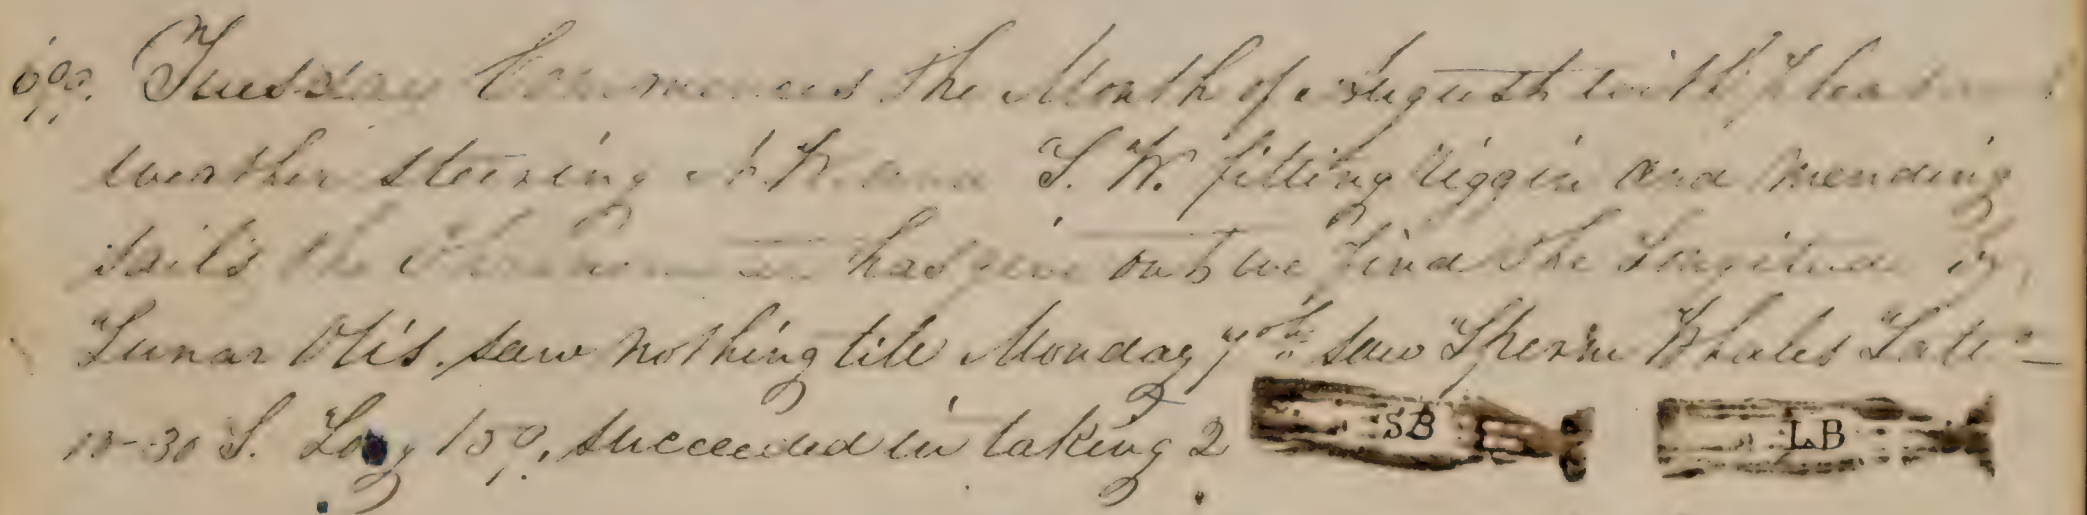 Tuesday Commences the Month of August with pleasant
weather steering and S. W. fitting riggin and mending
sails the has give out we find the Longitude by
Lunar Obs. saw nothing till Monday 7th saw Sperm Whales Late
13-30 S. Long 159, succeeded in taking 2 SB LB